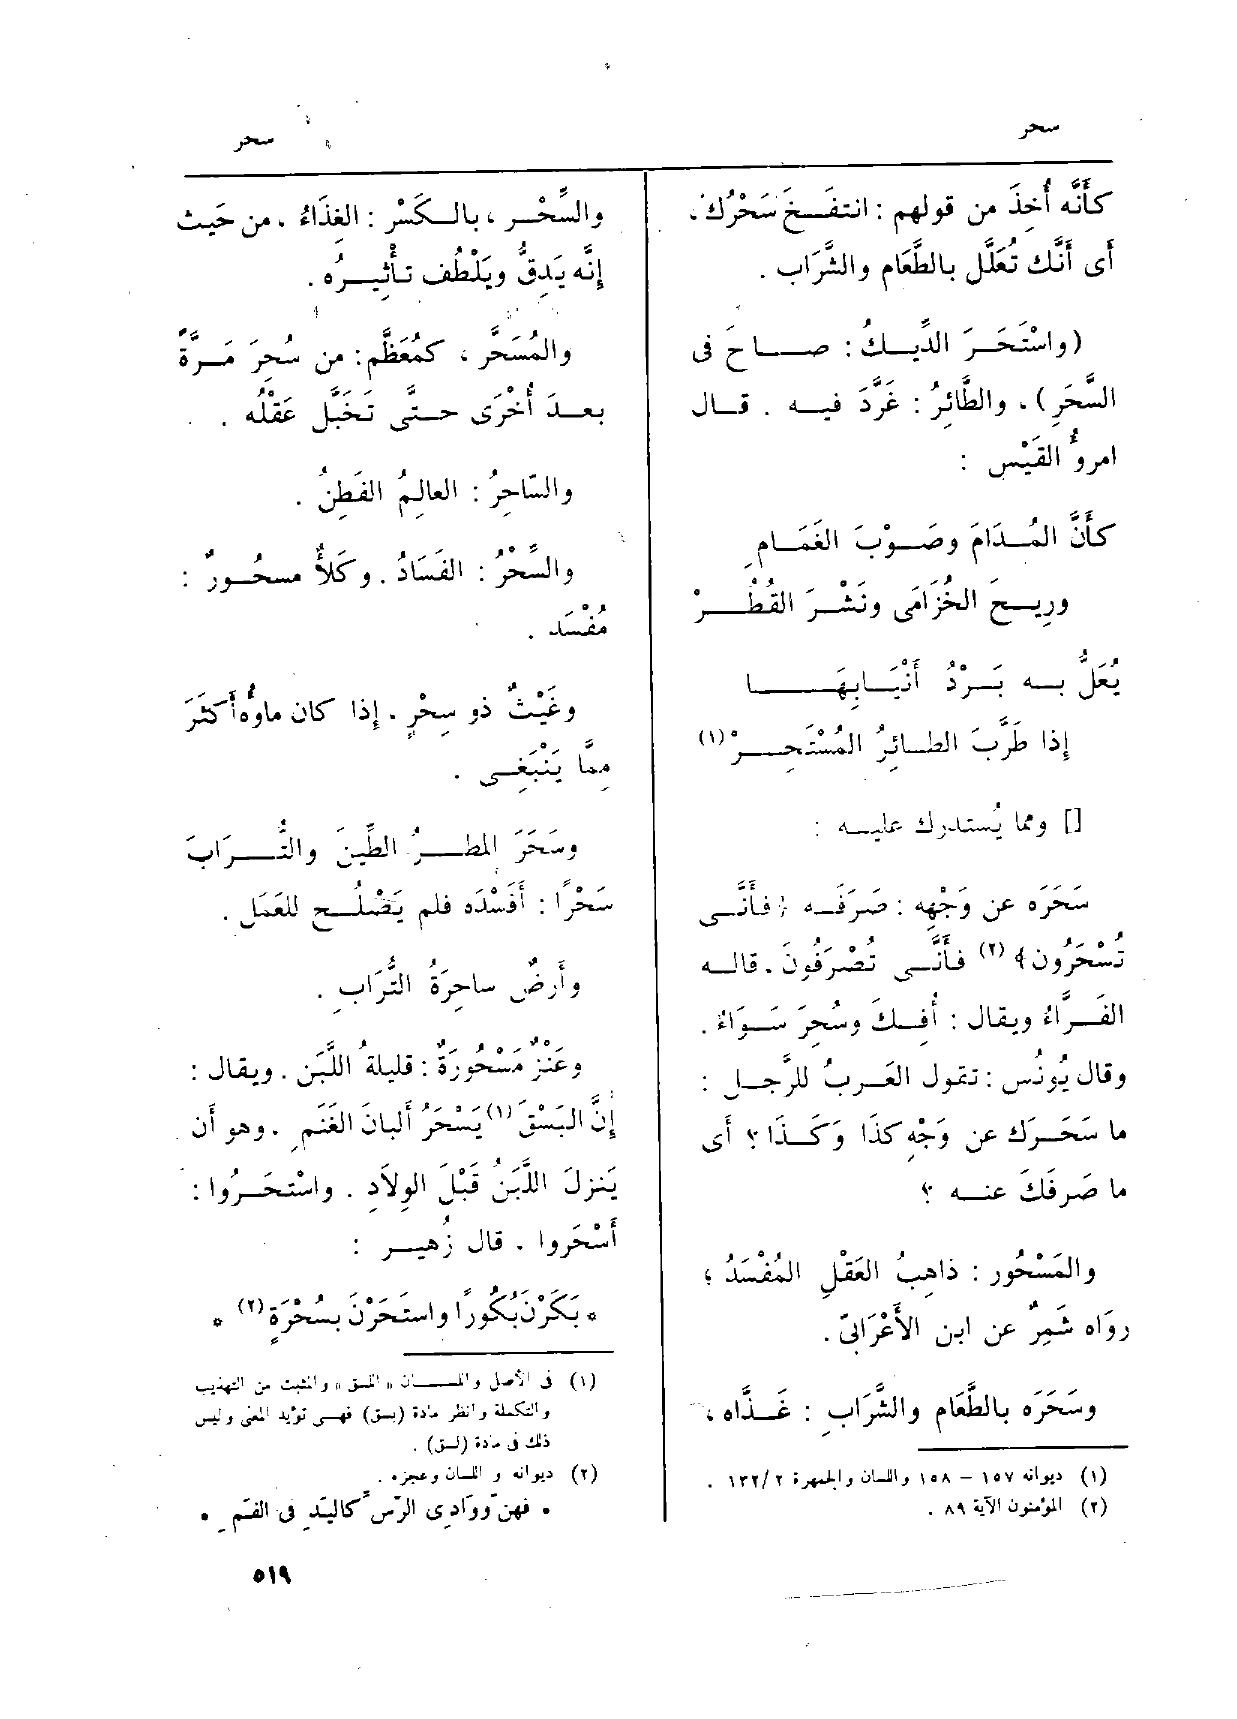 سحر
سحر
كأَنَّه أُخِذَ من قولهم : انتفَـخَ سَحْرُك ،
أى أَنَّك تُعَلَّل بالطَّعَام والشَّرَاب .
(واسْتَحَـرَ الدِّيـكُ : صـاحَ فى
السَّحَرِ) ، والطَّائِرُ : غَرَّدَ فيـه . قـال
امروُ القَيْس :
كأَنَّ المُـدَامَ وصَـوْبَ الغَمَـامِ
ورِيـحَ الخُزَامَى ونَشْـرَ القُطُـرْ
يُعَلُّ بـه بَـرْدُ أَنْيَـابِهَـا
إِذا طَرَّبَ الطـائِرُ المُسْتَحِـرْ (١)
[] ومما يُستدرك عليـه :
سَحَرَه عن وَجْهِه : صَرَفَـه ﴿فأَنَّـى
تُسْحَرُون﴾ (٢) فأَنَّـى تُصْرَفُونَ . قالـه
الفَـرَّاءُ ويقال : أُفِـكَ وسُحِرَ سَـوَاءٌ .
وقال يُونُس : تقول العَـربُ للرَّجـل :
ما سَحَـرَك عن وَجْهِ كَذَا وَكَـذَا ؟ أى
ما صَرفَكَ عنـه ؟
والمَسْحُور : ذاهِبُ العَقْلِ المُفْسَدُ ؛
روَاه شَمِرٌ عن ابن الأَعْرَابىّ .
وسَحَرَه بالطَّعَامِ والشَّرَابِ : غَـذَّاه ،
(١) ديوانه ١٥٧ – ١٥٨ واللسان والجمهرة ٢/ ١٣٢ .
(٢) المؤمنون الآية ٨٩ .
والسِّحْـر ، بالـكَسْر : الغِذَاءُ ، من حَيث
إِنَّه يَدِقُّ ويَلْطُف تـأْثِيـرُه .
والمُسَحَّر ، كمُعَظَّم : من سُحِرَ مَـرَّةً
بعـدَ أُخْرَى حـتَّى تَخَبَّل عَقْلُه .
والسّاحِرُ : العالِمُ الفَطِنُ .
والسِّحْرُ : الفَسَادُ . وكَلأٌ مسحُـورٌ :
مُفْسَد .
وغَيْثٌ ذو سِحْرٍ . إذا كان ماوُه أَكثَرَ
مِمَّا يَنْبَغِـى .
وسَحَرَ المطـرُ الطِّينَ والتُّـرَابَ
سَحْرًا : أَفْسَدَه فلم يَصْلُـح للعَمَل .
وأَرضٌ ساحِرَةُ التُّرَابِ .
وعَنْزٌ مَسْحُورَةٌ : قليلةُ اللَّبَن . ويقال :
إِنَّ البَسْقَ (١) يَسْحَرُ أَلبانَ الغَنَمِ . وهو أَن
يَنزِلَ اللَّبَنُ قَبْلَ الوِلَادِ . واسْتَحَـرُوا :
أَسْحَروا . قال زُهيـر :
* بَكَرْنَ بُكُورًا واستَحَرْنَ بسُحْرَةٍ (٢) *
(١) فى الأصل واللسان «اللسق» والمثبت من التهذيب
والتكملة وانظر مادة (بسق) فهـى تؤيد المعنى وليس
ذلك فى مادة (لسق) .
(٢) ديوانه و اللسان وعجزه .
* فهنّ ووادِى الرّسّ كاليَدِ فى الفَمِ *
٥١٩